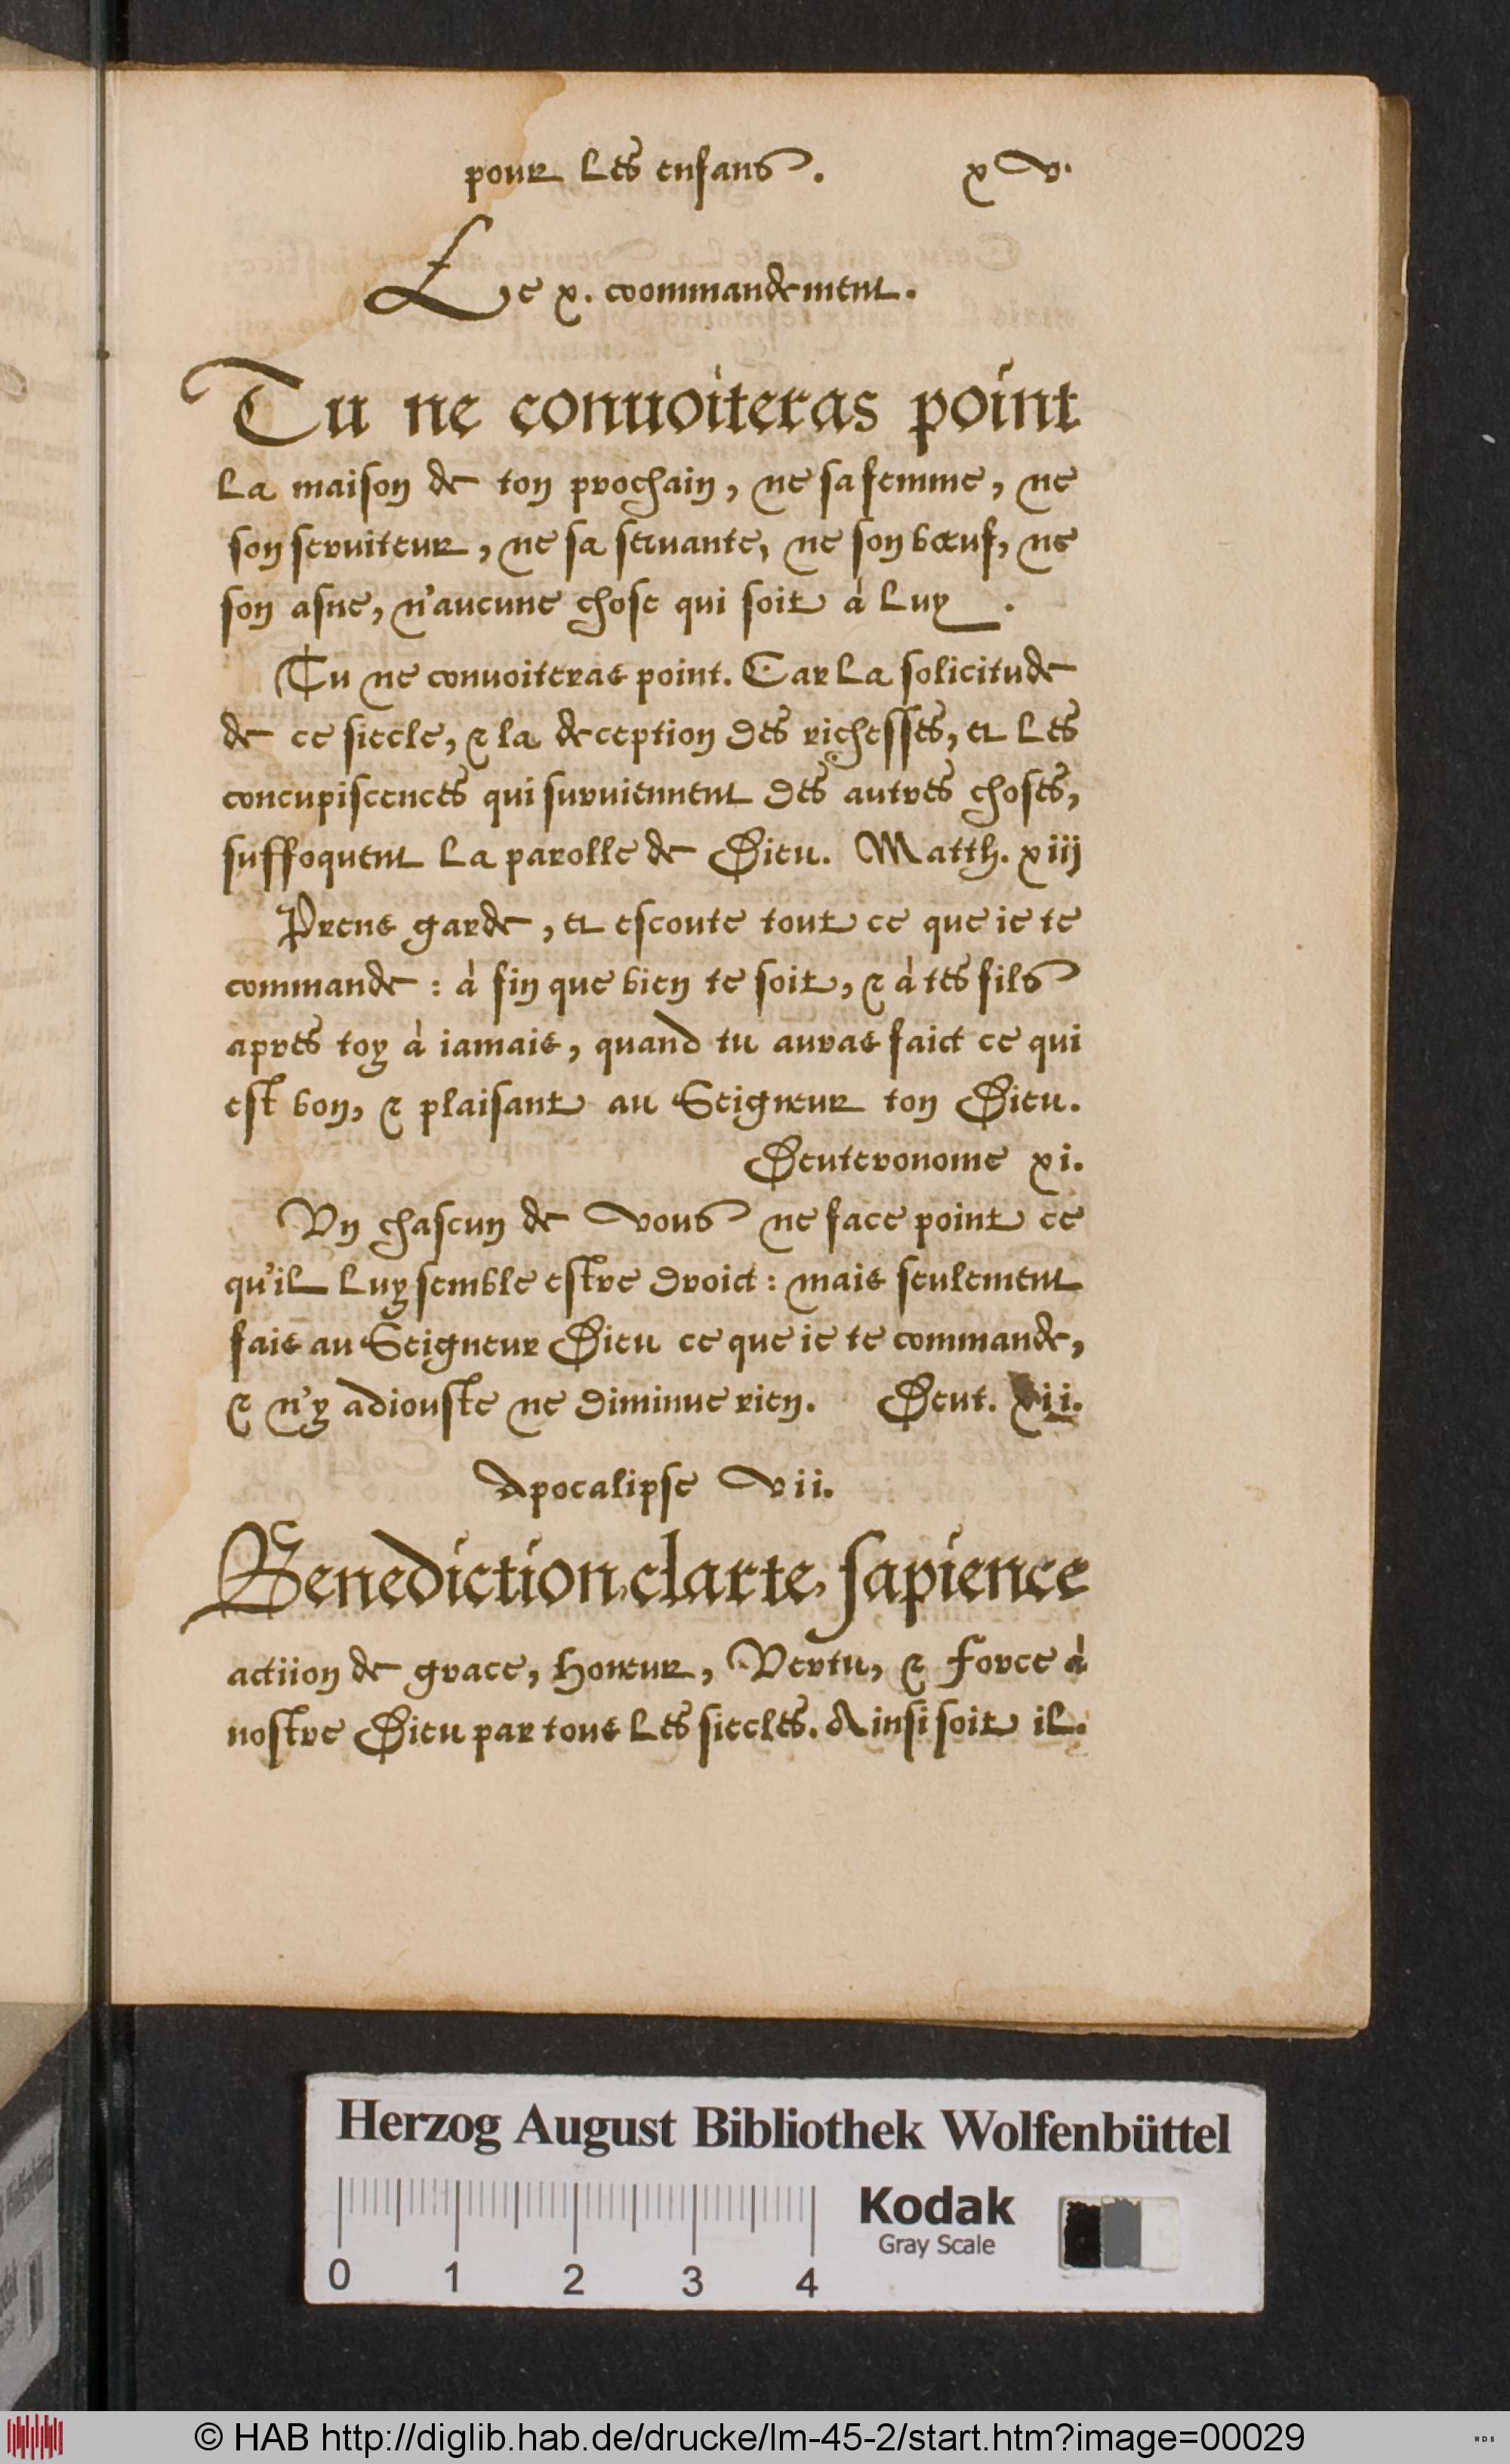 pour les enfans. xv.
Le x. coommandement.
Tu ne conuoiteras point
la maison de ton prochain, ne sa femme, ne
son seruiteur, ne sa seruante, ne son bœuf, ne
son asne, n'aucune chose qui soit à luy.
Tu ne conuoiteras point. Car la solicitude
de ce siecle, & la deception des richesses, et les
concupiscences qui suruiennent des autres choses,
suffoquent la parolle de Dieu. Matth. xiij
Prens garde, et escoute tout ce que ie te
commande: à fin que bien te soit, & à tes fils
apres toy à iamais, quand tu auras faict ce qui
est bon, & plaisant au Seigneur ton Dieu.
Deuteronome xi.
Vn chascun de vous ne face point ce
qu'il luy semble estre droict: mais seulement
fais au Seigneur Dieu ce que ie te commande,
& n'y adiouste ne diminue rien. Deut. xii.
Apocalipse vii.
Benediction, clarte, sapience
actiion de grace, honeur, Vertu, & force à
nostre Dieu par tous les siecles. Ainsi soit il.
Herzog August Bibliothek Wolfenbüttel
Kodak
Gray Scale
0 1 2 3 4
© HAB http://diglib.hab.de/drucke/lm-45-2/start.htm?image=00029